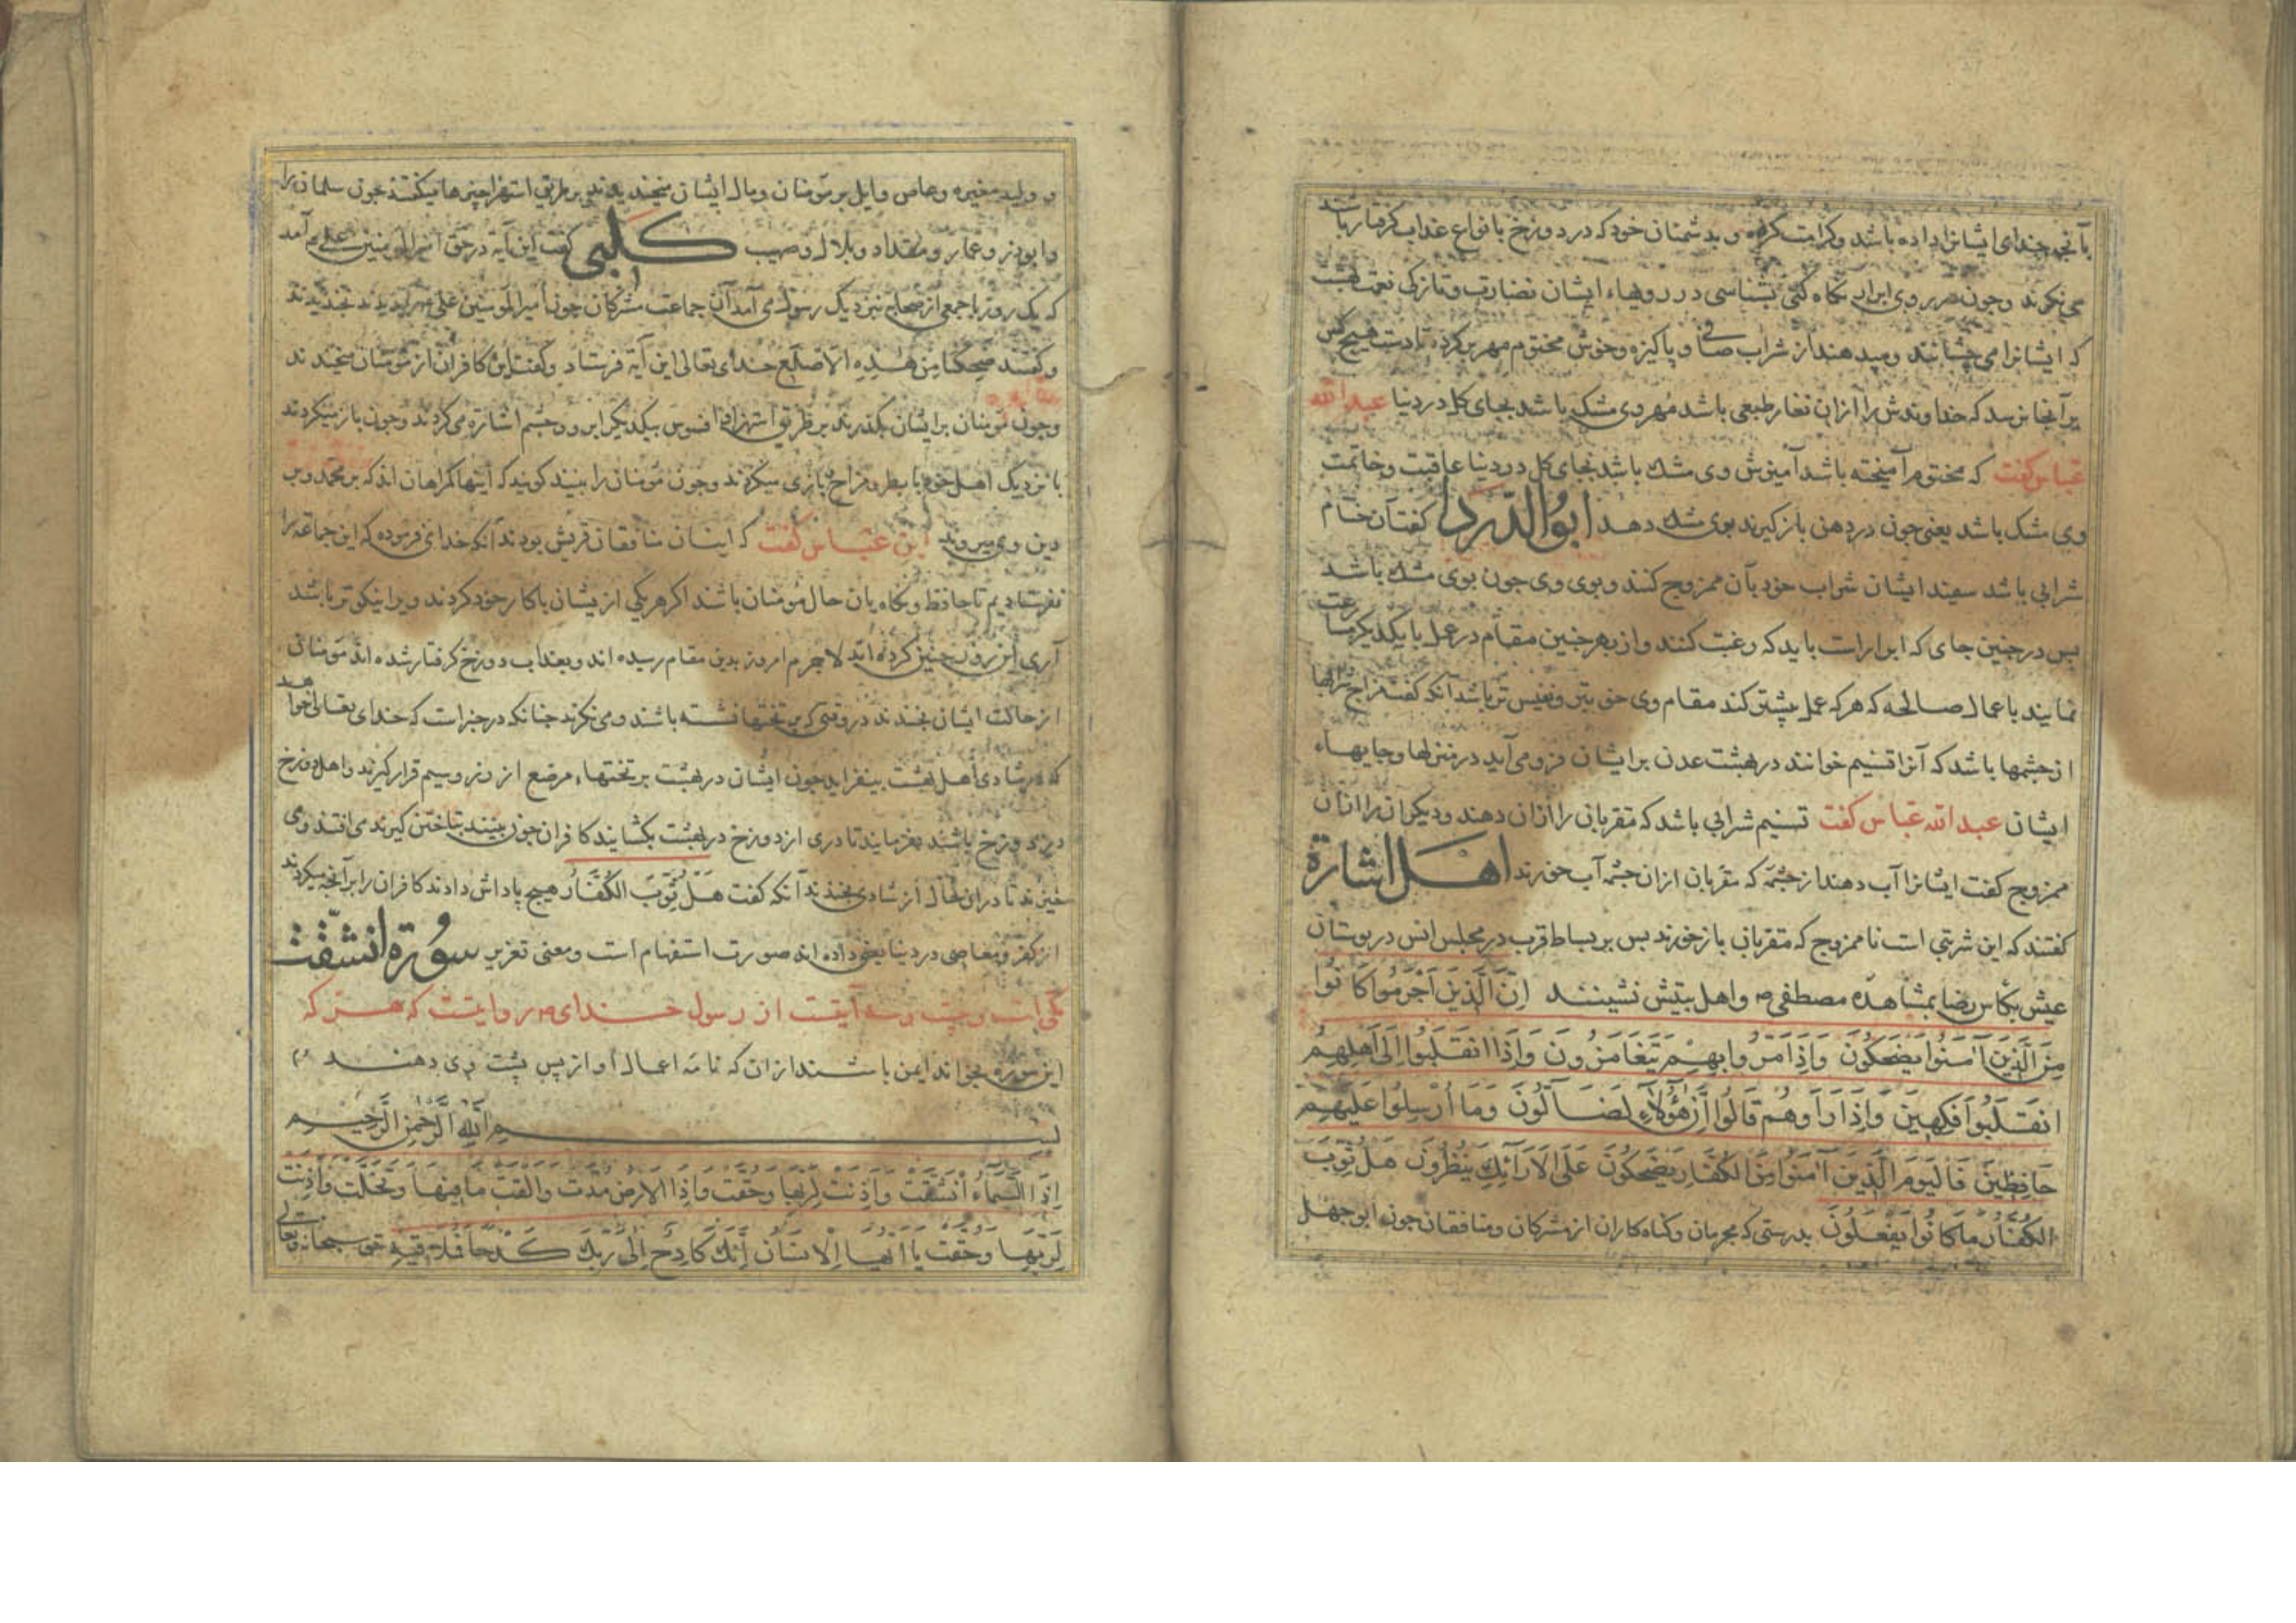 بآنچه خدای ایشانرا داده باشد وکرامت کرده و بدشمنان خود که در دوزخ بانواع عذاب کرفتار باشند
می نکرند وچون در روی ابرار نکاه کنی بشناسی در رویهاء ایشان نضارت وتازکی نعمت بهشت
که ایشانرا می چشانند ومیدهند از شراب صافی و پاکیزه وخوش مختوم مهر برکرده تا دست هیچ کس
برآنجا نرسد که خداوندش را ازان نفار طبعی باشد مهر وی مشک باشد بجای کل در دنیا عبد الله
عباس کفت که مختوم آمیخته باشد آمیزش وی مشک باشد بجای کل در دنیا عاقبت وخاتمت
وی مشک باشد یعنی چون در دهن بازکیرند بوی مشک دهد ابو الدردا کفت آن ختام
شرابی باشد سفید ایشان شراب خود بآن ممزوج کنند وبوی وی چون بوی مشک باشد
پس در چنین جای که ابرار است باید که رغبت کنند واز بهر چنین مقام در عمل با یکدیکر مسارعت
نمایند باعمال صالحه که هرکه عمل بیشتر کند مقام وی خوبتر ونفیس تر باشد آنکه کفت مزاج شرابها
از چشمها باشد که آنرا تسنیم خوانند در بهشت عدن بر ایشان فرو می آید در منزلها وجایهاء
ایشان عبد الله عباس کفت تسنیم شرابی باشد که مقربان را ازان دهند ودیکران را ازان
ممزوج کفت ایشانرا آب دهند از چشمه که مقربان ازان چشمه آب خورند اهل اشارة
کفتند که این شربتی است ناممزوج که مقربان بازخورند پس بر بساط قرب در مجلس انس در بوستان
عیش بکاس رضا بمشاهده مصطفی ص واهل بیتش نشینند اِنَّ الَّذِینَ اَجْرَمُوا کَانُوا
مِنَ الَّذِینَ آمَنُوا یَضْحَکُونَ وَاِذَا مَرُّوا بِهِمْ یَتَغَامَزُونَ وَاِذَا انقَلَبُوا اِلَی اَهْلِهِمُ
انقَلَبُوا فَکِهِینَ وَاِذَا رَاَوهُم قَالُوا اِنَّ هٰؤُلَاءِ لَضَالُّونَ وَمَا اُرْسِلُوا عَلَیْهِمْ
حَافِظِینَ فَالیَوْمَ الَّذِینَ آمَنُوا مِنَ الکُفَّارِ یَضْحَکُونَ عَلَی الاَرَائِکِ یَنظُرُونَ هَلْ ثُوِّبَ
الکُفَّارُ مَا کَانُوا یَفْعَلُونَ بدرستی که مجرمان وکناه کاران از مشرکان ومنافقان چون ابوجهل
و ولید مغیره وعاص وایل بر مؤمنان ومال ایشان میخندیدند بر طریق استهزا چیزها میکفتند چون سلمان را
وابوذر وعمار ومقداد وبلال وصهیب کلبی کفت این آیه در حق امیر المؤمنین علی ع آمد
که یک روز با جمعی از صحابه نزدیک رسول می آمد آن جماعت مشرکان چون امیر المؤمنین علی را بدیدند بخندیدند
وکفتند ضحکنا من هذه الاضلع خدای تعالی این آیه فرستاد وکفت این کافران از مؤمنان میخندند
وچون مؤمنان بر ایشان بکذرند بر طریق استهزا وافسوس بیکدیکر ابرو وچشم اشاره می کردند وچون باز میکردند
با نزدیک اهل خود با بطر ومزاح بازی میکردند وچون مؤمنان را بینند کویند که اینها کمراهان اند که بر محمد وبر
دین وی میروند ابن عباس کفت که اینان منافقان قریش بودند آنکه خدای فرموده که این جماعه را
نفرستادیم تا حافظ ونکاه بان حال مؤمنان باشند اکر هر یکی از یشان باکار خود کردند ویرا نیکوتر باشد
آری این روز چنین کرده اند لاجرم امروز بدین مقام رسیده اند وبعذاب دوزخ کرفتار شده اند مؤمنان
از حالت ایشان بخندند در وقتی که بر تختها نشسته باشند ومی نکرند چنانکه در خبر است که خدای تعالی خواهد
که در شادی اهل بهشت بیفزاید چون ایشان در بهشت بر تختهاء مرضع از زر وسیم قرار کیرند واهل دوزخ
در دوزخ باشند بفرمایند تا دری از دوزخ در بهشت بکشایند کافران چون ببینند بتاختن کیرند می افتند ومی
خیزند تا دران حال از شادی بخندند آنکه کفت هَلْ ثُوِّبَ الکُفَّارُ هیچ پاداش دادند کافران را برآنچه میکردند
از کفر ومعاصی در دنیا یعنی داده اند صورت استفهام است ومعنی تقریر سورة انشقت
مکی است و بیست وسه آیتست از رسول خدای ص روایتست که هر که
این سوره بخواند ایمن باشند ازان که نامه اعمال او از پس پشت وی دهند
بسم الله الرحمن الرحیم
اِذَا السَّمَاءُ انْشَقَّتْ وَاَذِنَتْ لِرَبِّهَا وَحُقَّتْ وَاِذَا الاَرْضُ مُدَّتْ وَالْقَتْ مَا فِیهَا وَتَخَلَّتْ وَاَذِنَتْ
لِرَبِّهَا وَحُقَّتْ یَا اَیُّهَا الاِنسَانُ اِنَّکَ کَادِحٌ اِلَی رَبِّکَ کَدْحًا فَمُلَاقِیهِ حق سبحانه وتعالی